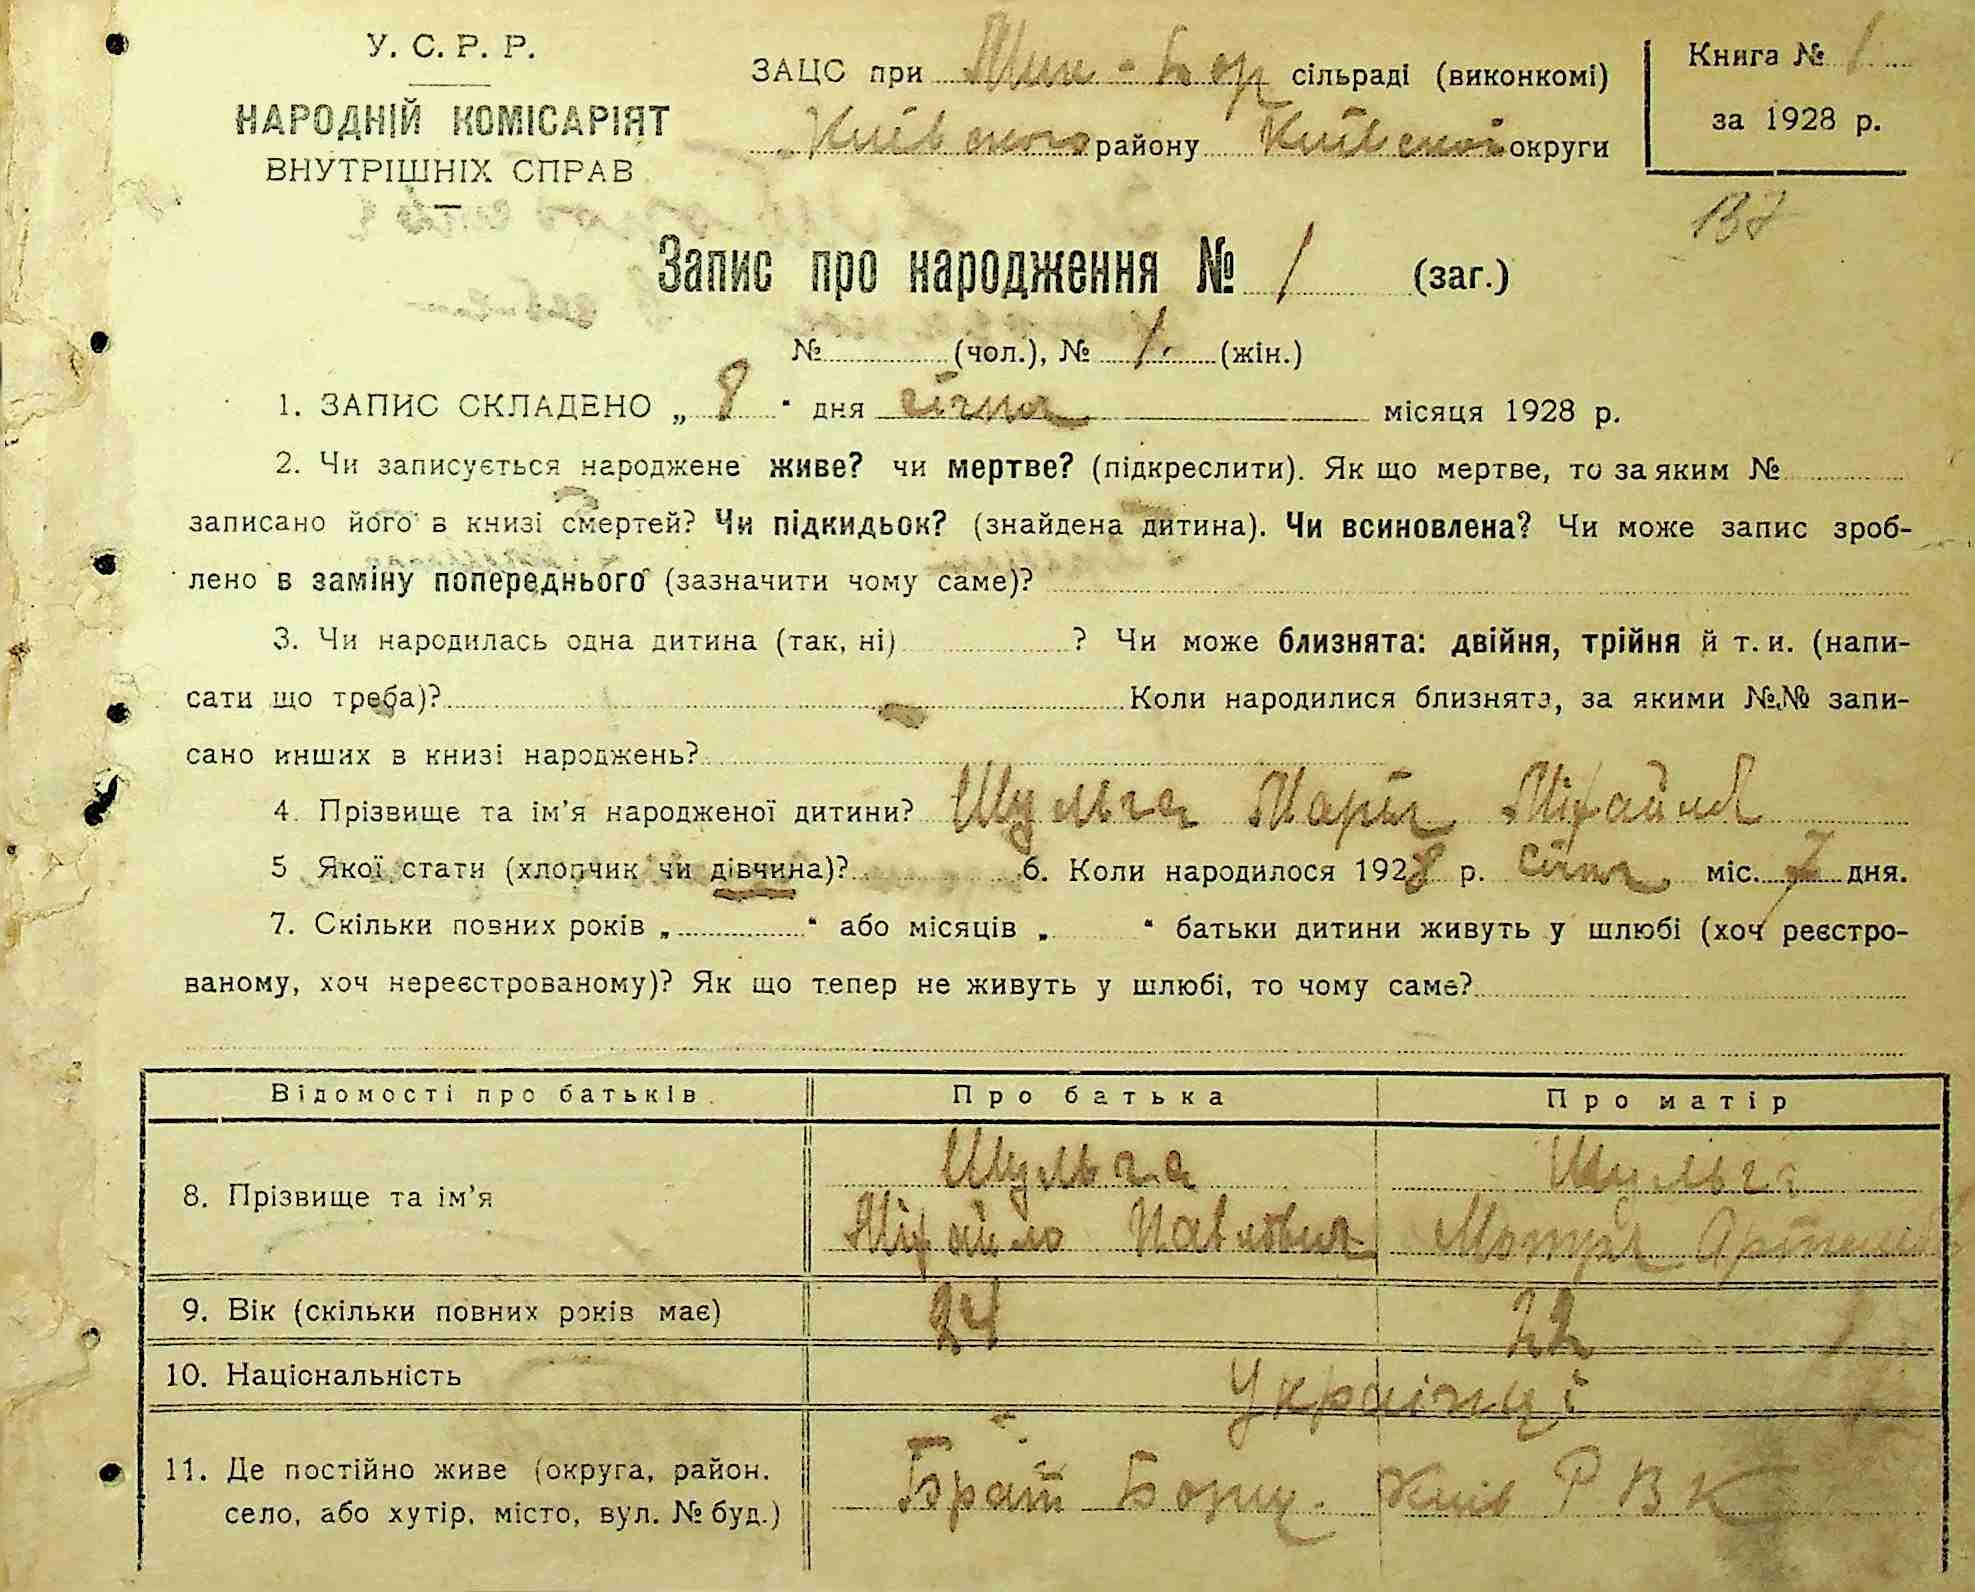 У. С. Р. Р.
НАРОДНІЙ КОМІСАРІЯТ
ВНУТРІШНІХ СПРАВ
ЗАЦС при Мик-Бор сільраді (виконкомі)
Київського району Київської округи
Книга № 1
за 1928 р.
137
Запис про народження № 1 (заг.)
№ (чол.), № 1. (жін.)
1. ЗАПИС СКЛАДЕНО „ 8 " дня січня місяця 1928 р.
2. Чи записується народжене живе? чи мертве? (підкреслити). Як що мертве, то за яким №
записано його в книзі смертей? Чи підкидьок? (знайдена дитина). Чи всиновлена? Чи може запис зроб-
лено в заміну попереднього (зазначити чому саме)?
3. Чи народилась одна дитина (так, ні) ? Чи може близнята: двійня, трійня й т. и. (напи-
сати що треба)? Коли народилися близнята, за якими №№ запи-
сано инших в книзі народжень?
4. Прізвище та ім'я народженої дитини? Шульга Марія Міхайлов
5 Якої стати (хлопчик чи дівчина)? 6. Коли народилося 1928 р. січня міс. 7 дня.
7. Скільки повних років „ " або місяців „ " батьки дитини живуть у шлюбі (хоч реєстро-
ваному, хоч нереєстрованому)? Як що тепер не живуть у шлюбі, то чому саме?
Відомості про батьків Про батька Про матір
8. Прізвище та ім'я Шульга Шульга
Міхайло Павлович Мотря
9. Вік (скільки повних років має) 24 22
10. Національність Українці
11. Де постійно живе (округа, район,
село, або хутір, місто, вул. № буд.) Брат Борщ. Київ Р В К